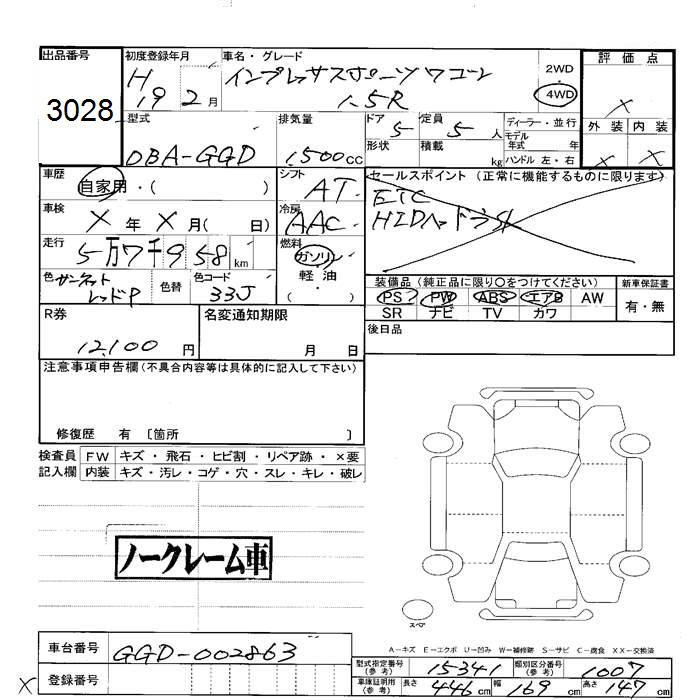 出品番号 初度登録年月 車名・グレード 評価点
3028 H19 2月 インプレッサスポーツワゴン 2WD
1.5R 4WD X
型式 排気量 ドア 定員 ディーラー・並行 外装 内装
DBA-GGD 1,500cc 5 5人 モデル年式 年 X X
形状 積載 kg ハンドル 左・右
車歴 自家用・( ) シフト AT セールスポイント (正常に機能するものに限ります)
車検 X年 X月( 日) 冷房 AAC ETC
HIDヘッドライト
走行 5万7千958km 燃料 ガソリン
軽油
・( )
色 ガーネットレッドP 色替 色コード 33J
装備品 (純正品に限り○をつけてください) 新車保証書
PS PW ABS エアB AW 有・無
SR ナビ TV カワ
R券 12,100円 名変通知期限 月 日 後日品
注意事項申告欄 (不具合内容等は具体的に記入して下さい)
修復歴 有 〔箇所 〕
検査員 FW キズ・飛石・ヒビ割・リペア跡・×要
記入欄 内装 キズ・汚レ・コゲ・穴・スレ・キレ・破レ
ノークレーム車
スペア
A−キズ E−エクボ U−凹み W−補修跡 S−サビ C−腐食 XX−交換済
車台番号 GGD-002863
型式指定番号(参考) 15341 類別区分番号(参考) 1007
X 登録番号
車庫証明用(参考) 長さ 446cm 幅 169cm 高さ 147cm